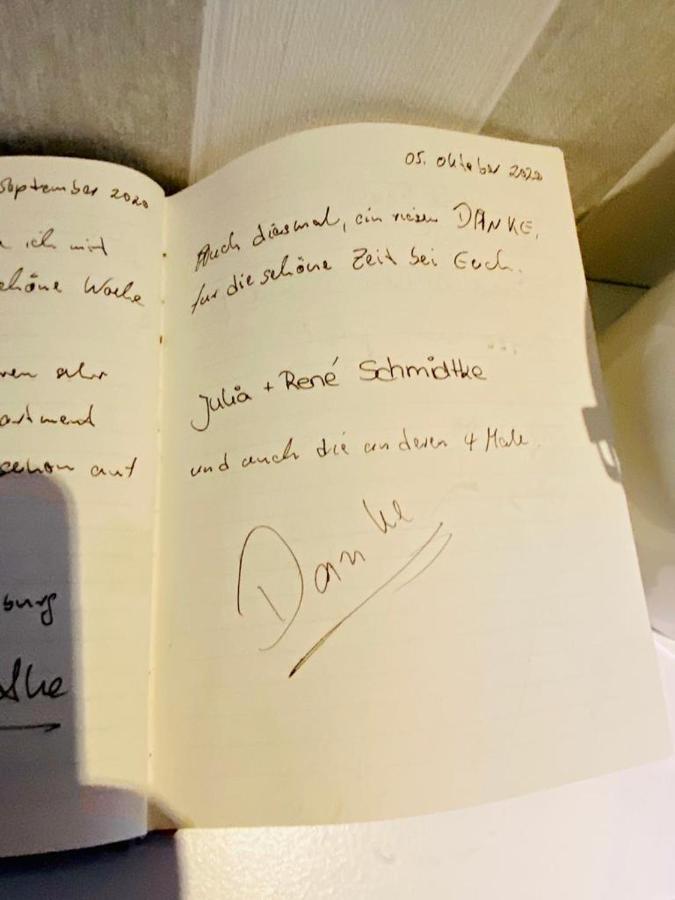 September 2020
ich mit
schöne Woche
ren sehr
artment
schon auf
burg
05. Oktober 2020
Auch diesmal, ein riesen DANKE,
für die schöne Zeit bei Euch.
Julia + René Schmidtke
und auch die anderen 4 Male
Danke